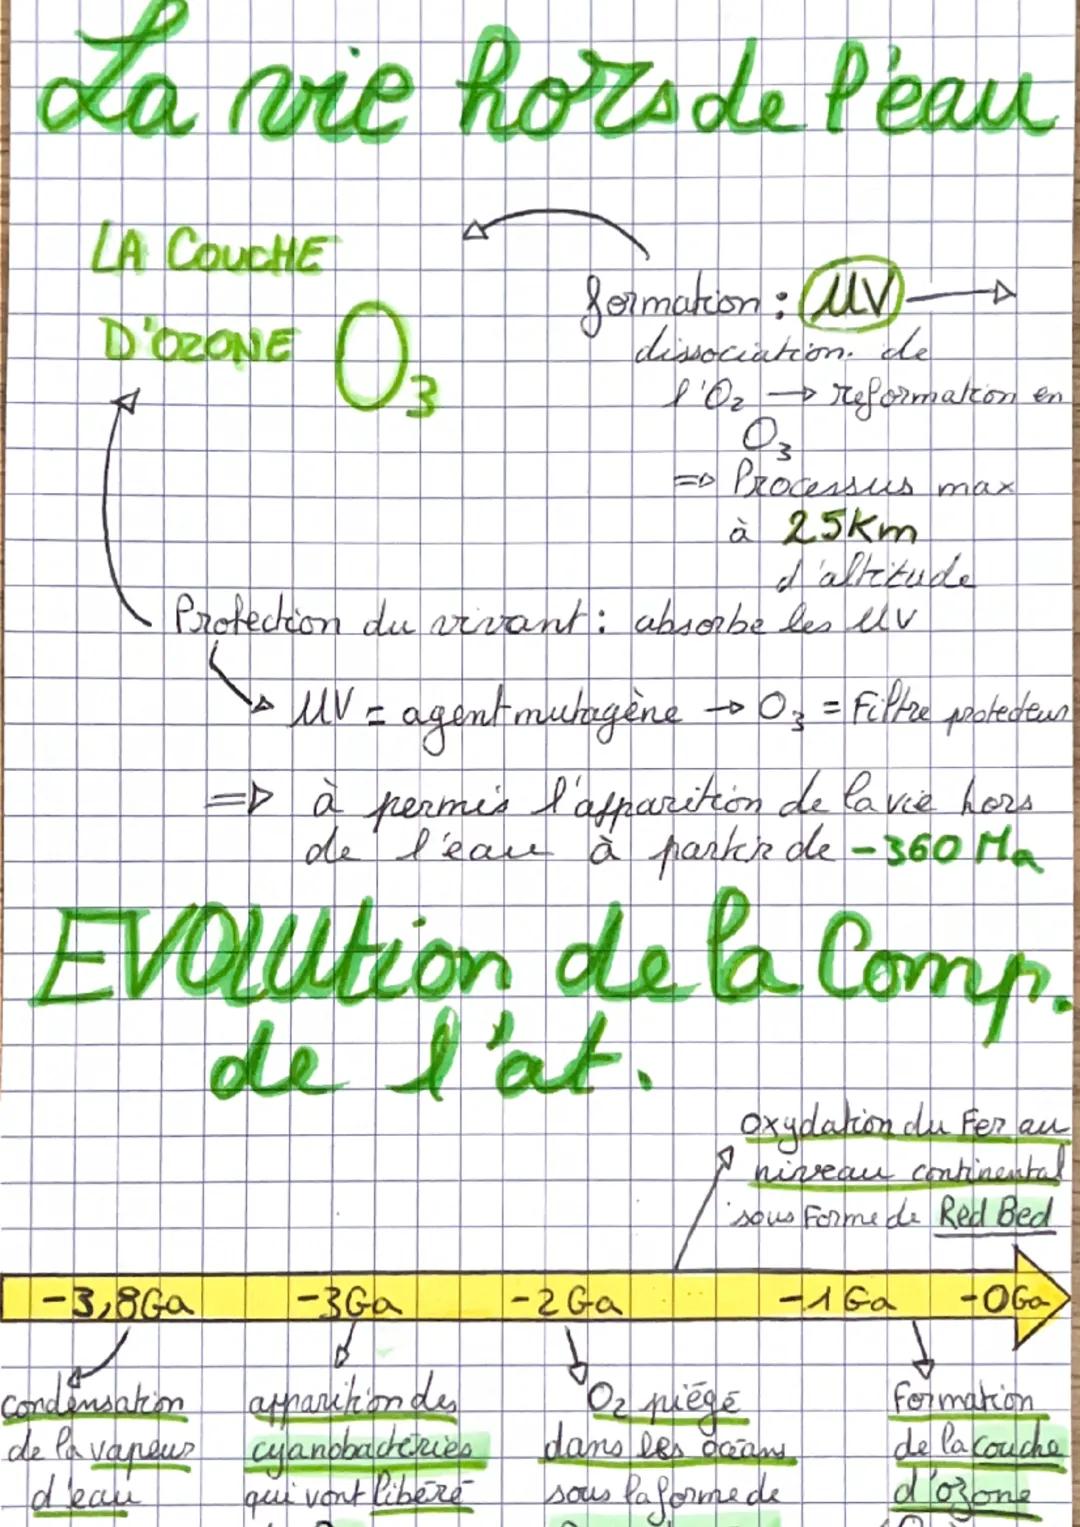 La vie hors de l'eau
LA COUCHE
D'OZONE O3
formation : UV →
dissociation de
l'O2 → reformation en
O3
=> Processus max
à 25Km
d'altitude
Protection du vivant : absorbe les UV
UV = agent mutagène → O3 = Filtre protecteur
=> à permis l'apparition de la vie hors
de l'eau à partir de -360 Ma
EVOlUtion de la Comp.
de l'at.
oxydation du Fer au
niveau continental
sous Forme de Red Bed
-3,8Ga -3Ga -2Ga -1Ga -0Ga
condensation
de la vapeur
d'eau
apparition des
cyanobactéries
qui vont libéré
O2 piégé
dans les océans
sous la forme de
Formation
de la couche
d'ozone